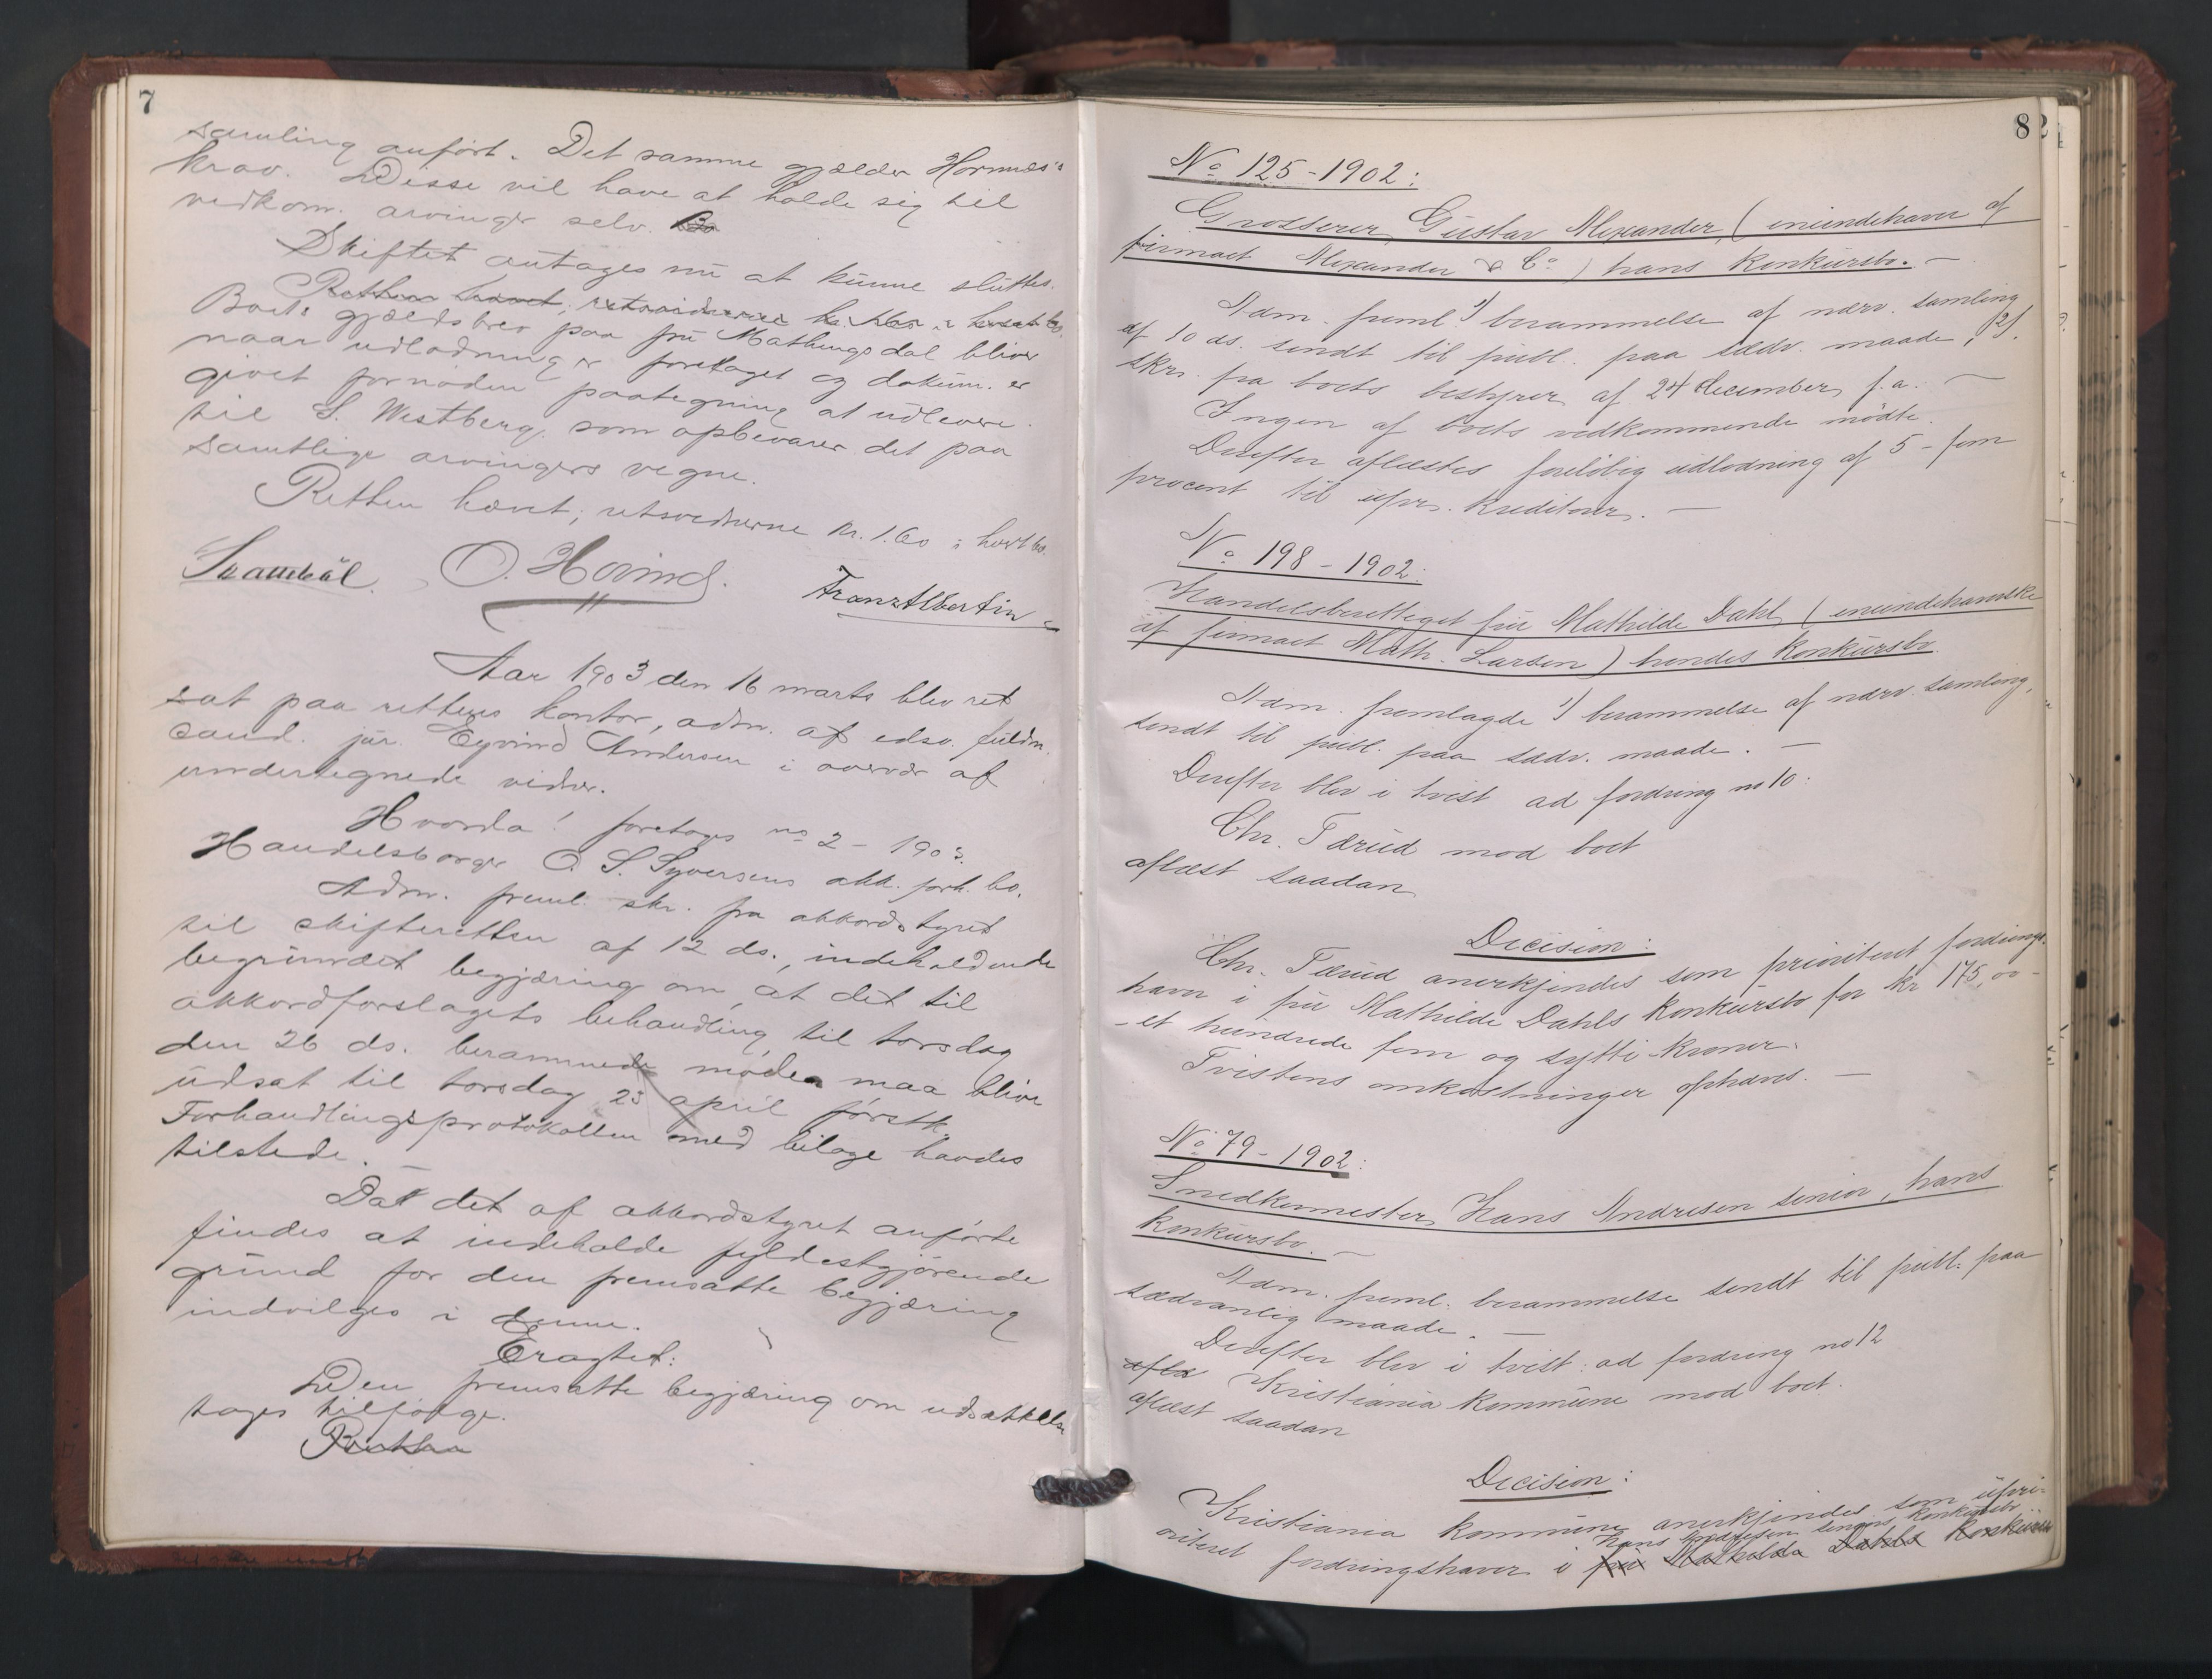 7
samling anført. Det samme gjælder Hornnæs's
krav. Disse vil have at holde sig til
vedkom. arvinger selv. Bo
Skiftet antages nu at kunne sluttes.
Retten hævet; retsvidnerne kr. 1.60 i hvert bo.
Boets gjældsbrev paa fru Mathingsdal bliver
naar udlodning er foretaget og dokum. er
givet fornøden paategning at udlevere
til S. Westberg, som opbevarer det paa
samtlige arvingers vegne.
Retten hævet; retsvidnerne kr. 1.60 i hvert bo.
O. Hovind. Franz Albertin
Aar 1903 den 16 marts blev ret
sat paa rettens kontor, adm. af edsv. fuldm.
cand. jur. Eyvind Andersen i overvær af
undertegnede vidner.
Hvorda! foretoges no 2 - 1903.
Handelsborger O. S. Syversens akk. forh. bo.
Adm. freml. skr. fra akkordstyret
til skifteretten af 12 ds., indeholdende
begrundet begjæring om, at det til
akkordforslagets behandling til torsdag
den 26 ds. berammede møde maa blive
udsat til torsdag 23 april førstk.
Forhandlingsprotokollen med bilage havdes
tilstede.
Da det af akkordstyret anførte
findes at indeholde fyldestgjørende
grund for den fremsatte begjæring
indvilges i denne.
Eragtet:
Den fremsatte begjæring om udsættelse
tages tilfølge.
Retten
82
No 125-1902:
Grosserer Gustav Alexander, (eneindehaver af
firmaet Alexander & Co) hans konkursbo. -
Adm. freml. 1) berammelse af nærv. samling
af 10 ds. sendt til publ. paa sædv. maade, 2)
skr. fra boets bestyrer af 24 december f.a. -
Ingen af boets vedkommende mødte.
Derefter aflæstes foreløbig udlodning af 5 - fem
procent til upr. kreditorer. -
No 198 - 1902:
Handelsberettiget fru Mathilde Dahl, (eneindehaverske
af firmaet Math. Larsen) hendes konkursbo.
Adm. fremlagde 1) berammelse af nærv. samling,
sendt til publ. paa sædv. maade. -
Derefter blev i tvist ad fordring no 10:
Chr. Tærud mod boet
aflæst saadan
Decision:
Chr. Tærud anerkjendes som prioriteret fordrings-
haver i fru Mathilde Dahls konkursbo for kr 175,00 -
- et hundrede fem og sytti kroner.
Tvistens omkostninger ophæves. -
No 79 - 1902:
Snedkermester Hans Andresen senior, hans
konkursbo. -
Adm. freml. berammelse sendt til publ. paa
sædvanlig maade. -
Derefter blev i tvist: ad fordring no 12
aflæ Kristiania kommune mod boet.
aflæst saadan
Decision:
Kristiania kommune anerkjendes som upri-
Hans Andresen seniors konkursbo
oriteret fordringshaver i fru Mathilde Dahls konkurs